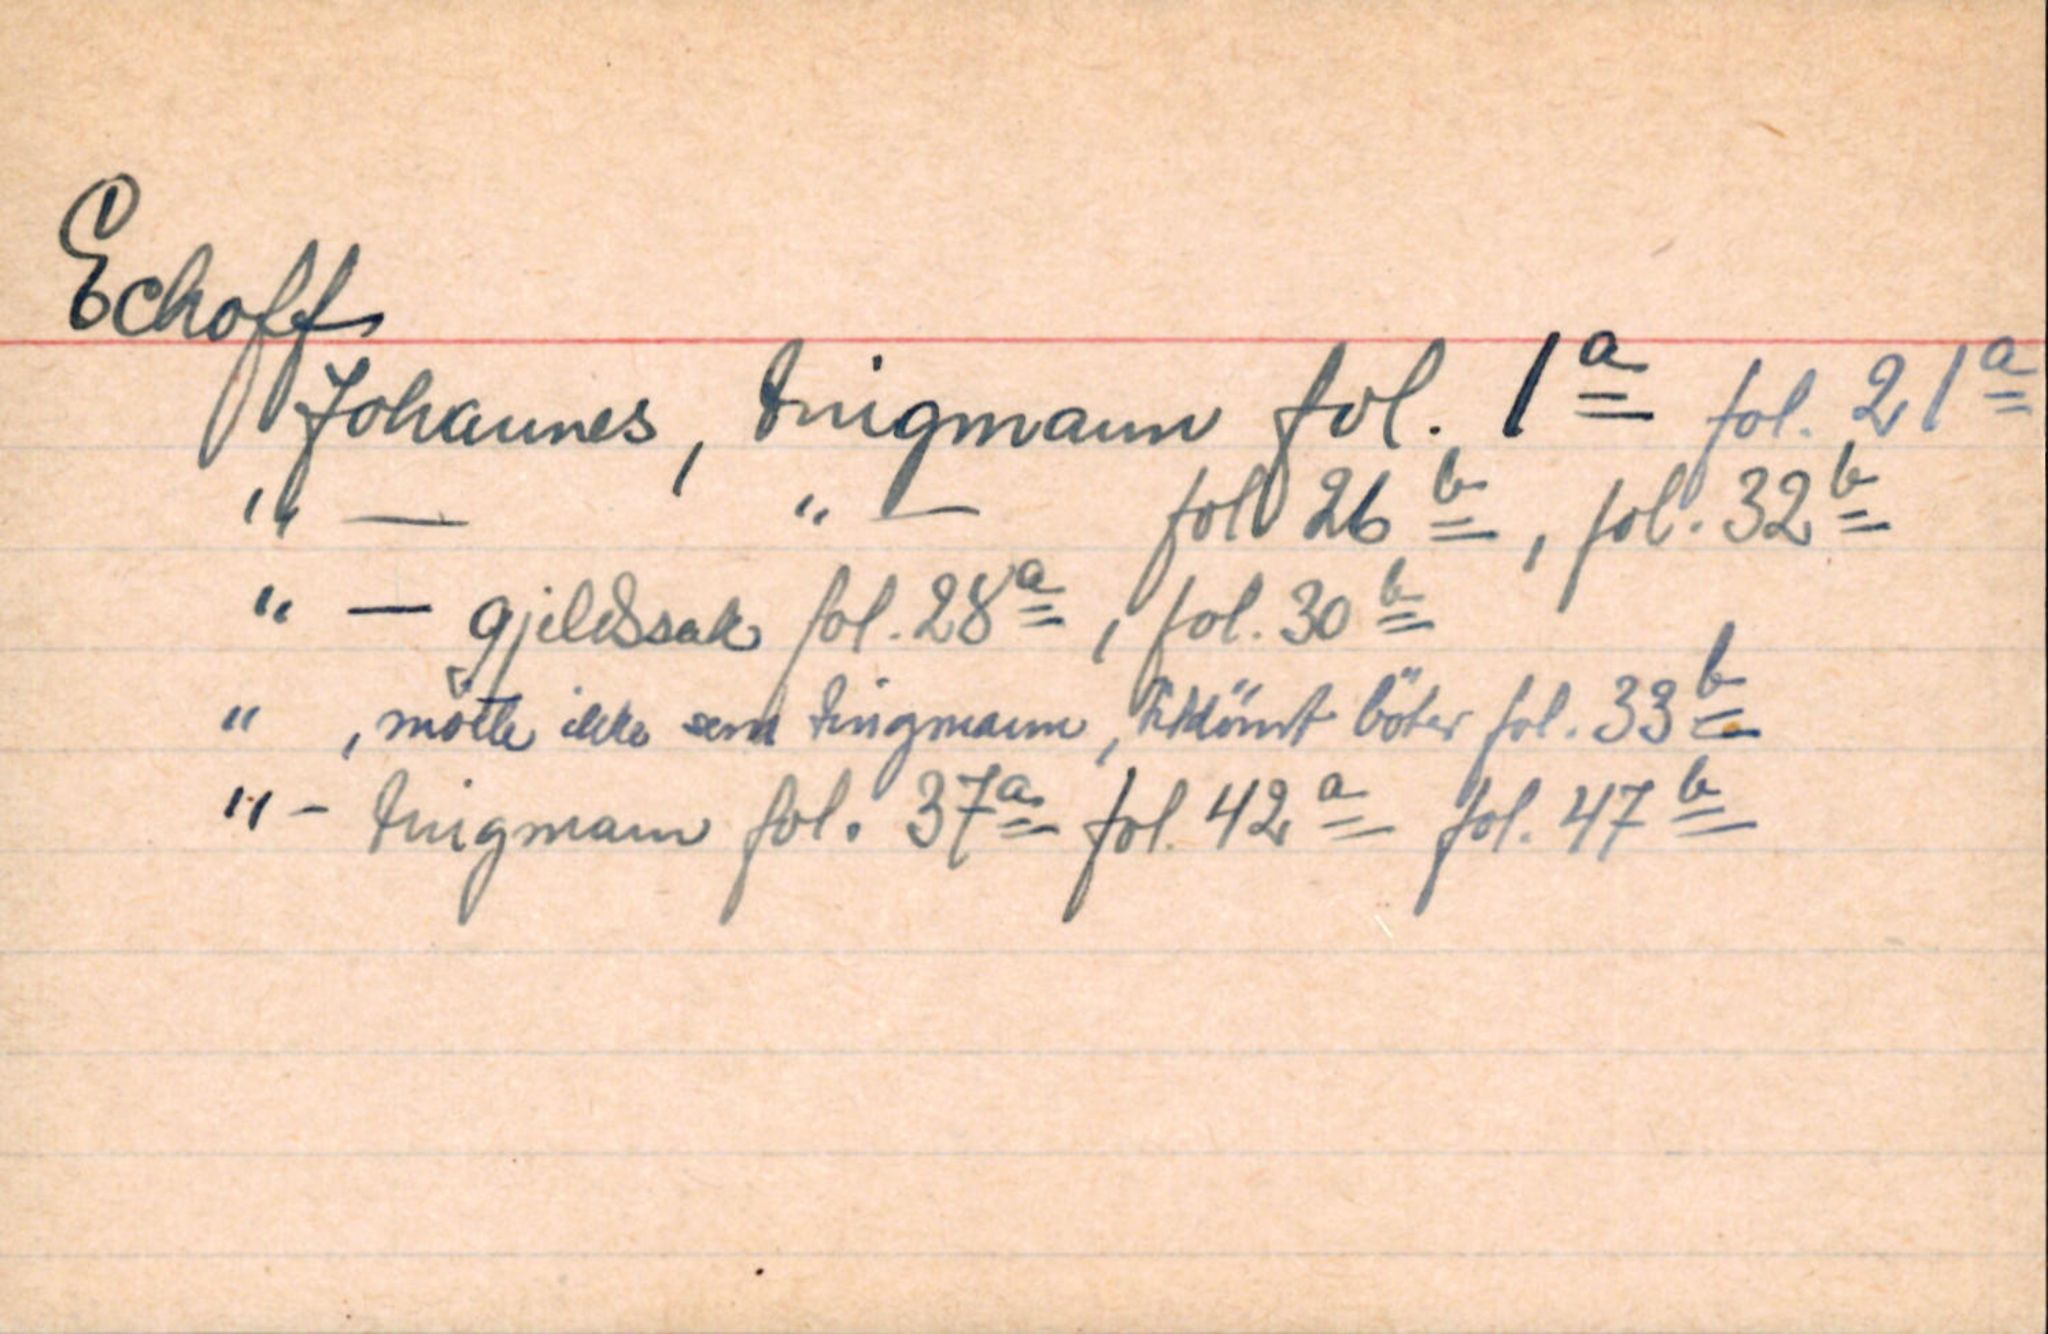 Echoff
Johannes, tingmann fol. 1a fol. 21a
" — " — fol. 26b, fol. 32b
" — gjeldssak fol. 28a, fol. 30b
" , mötte ikke som tingmann, idömt böter fol. 33b
" - tingmann fol. 37a fol. 42a fol. 47b